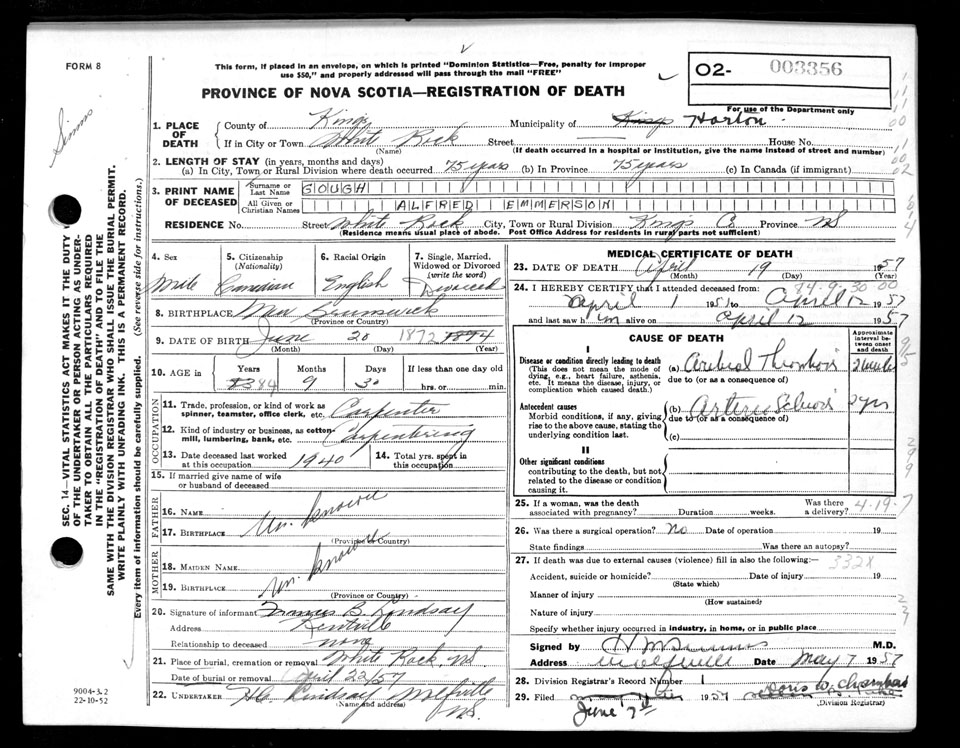 FORM 8
This form, if placed in an envelope, on which is printed "Dominion Statistics—Free, penalty for improper
use $50," and properly addressed will pass through the mail "FREE"
PROVINCE OF NOVA SCOTIA—REGISTRATION OF DEATH
O2- 003356
For use of the Department only
Simms
SEC. 14—VITAL STATISTICS ACT MAKES IT THE DUTY
OF THE UNDERTAKER OR PERSON ACTING AS UNDER-
TAKER TO OBTAIN ALL THE PARTICULARS REQUIRED
IN THE "REGISTRATION OF DEATH" AND TO FILE THE
SAME WITH THE DIVISION REGISTRAR WHO SHALL ISSUE THE BURIAL PERMIT.
WRITE PLAINLY WITH UNFADING INK. THIS IS A PERMANENT RECORD.
Every item of information should be carefully supplied. (See reverse side for instructions.)
1. PLACE OF DEATH County of Kings Municipality of Kings Horton
If in City or Town White Rock Street House No.
(Name) (If death occurred in a hospital or institution, give the name instead of street and number)
2. LENGTH OF STAY (in years, months and days)
(a) In City, Town or Rural Division where death occurred 75 years (b) In Province 75 years (c) In Canada (if immigrant)
3. PRINT NAME OF DECEASED Surname or Last Name GOUGH
All Given or Christian Names ALFRED EMMERSON
RESIDENCE No. Street White Rock City, Town or Rural Division Kings Co Province NS
(Residence means usual place of abode. Post Office Address for residents in rural parts not sufficient)
4. Sex 5. Citizenship (Nationality) 6. Racial Origin 7. Single, Married, Widowed or Divorced (write the word)
Male Canadian English Divorced
8. BIRTHPLACE New Brunswick
(Province or Country)
9. DATE OF BIRTH June 20 1872 1874
(Month) (Day) (Year)
10. AGE in Years Months Days If less than one day old
83 84 9 30 hrs. or min.
OCCUPATION
11. Trade, profession, or kind of work as spinner, teamster, office clerk, etc. Carpenter
12. Kind of industry or business, as cotton-mill, lumbering, bank, etc. Carpentering
13. Date deceased last worked at this occupation 1940 14. Total yrs. spent in this occupation
15. If married give name of wife or husband of deceased
FATHER
16. Name
17. Birthplace Un. known
(Province or Country)
MOTHER
18. Maiden Name
19. Birthplace Un. known
(Province or Country)
20. Signature of informant Francis B. Lindsay
Address Kentville
Relationship to deceased none
21. Place of burial, cremation or removal White Rock, NS.
Date of burial or removal April 22/57
22. Undertaker H.C. Lindsay Wolfville
(Name and address) NS.
9004-3.2
22-10-52
MEDICAL CERTIFICATE OF DEATH
23. DATE OF DEATH April 19 1957
(Month) (Day) (Year)
84-9-30 00
24. I HEREBY CERTIFY that I attended deceased from:
April 1 1951 to April 12 1957
and last saw him alive on April 12 1957
CAUSE OF DEATH
Approximate interval between onset and death
I
Disease or condition directly leading to death
(This does not mean the mode of dying, e.g., heart failure, asthenia, etc. It means the disease, injury, or complication which caused death.)
(a) Cerebral Thrombosis 2 weeks
due to (or as a consequence of)
Antecedent causes
Morbid conditions, if any, giving rise to the above cause, stating the underlying condition last.
(b) Arterio Sclerosis 2 yrs
due to (or as a consequence of)
(c)
II
Other significant conditions
contributing to the death, but not related to the disease or condition causing it.
25. If a woman, was the death associated with pregnancy? Duration weeks. Was there a delivery?
4-19-7
26. Was there a surgical operation? No Date of operation 19
State findings Was there an autopsy?
27. If death was due to external causes (violence) fill in also the following:
332X
Accident, suicide or homicide? Date of injury 19
(State which)
Manner of injury
(How sustained)
Nature of injury
Specify whether injury occurred in industry, in home, or in public place
Signed by M.D.
Address Wolfville Date May 7 1957
28. Division Registrar's Record Number 1
29. Filed June 7th 1957 Doris W. Chambers
(Division Registrar)